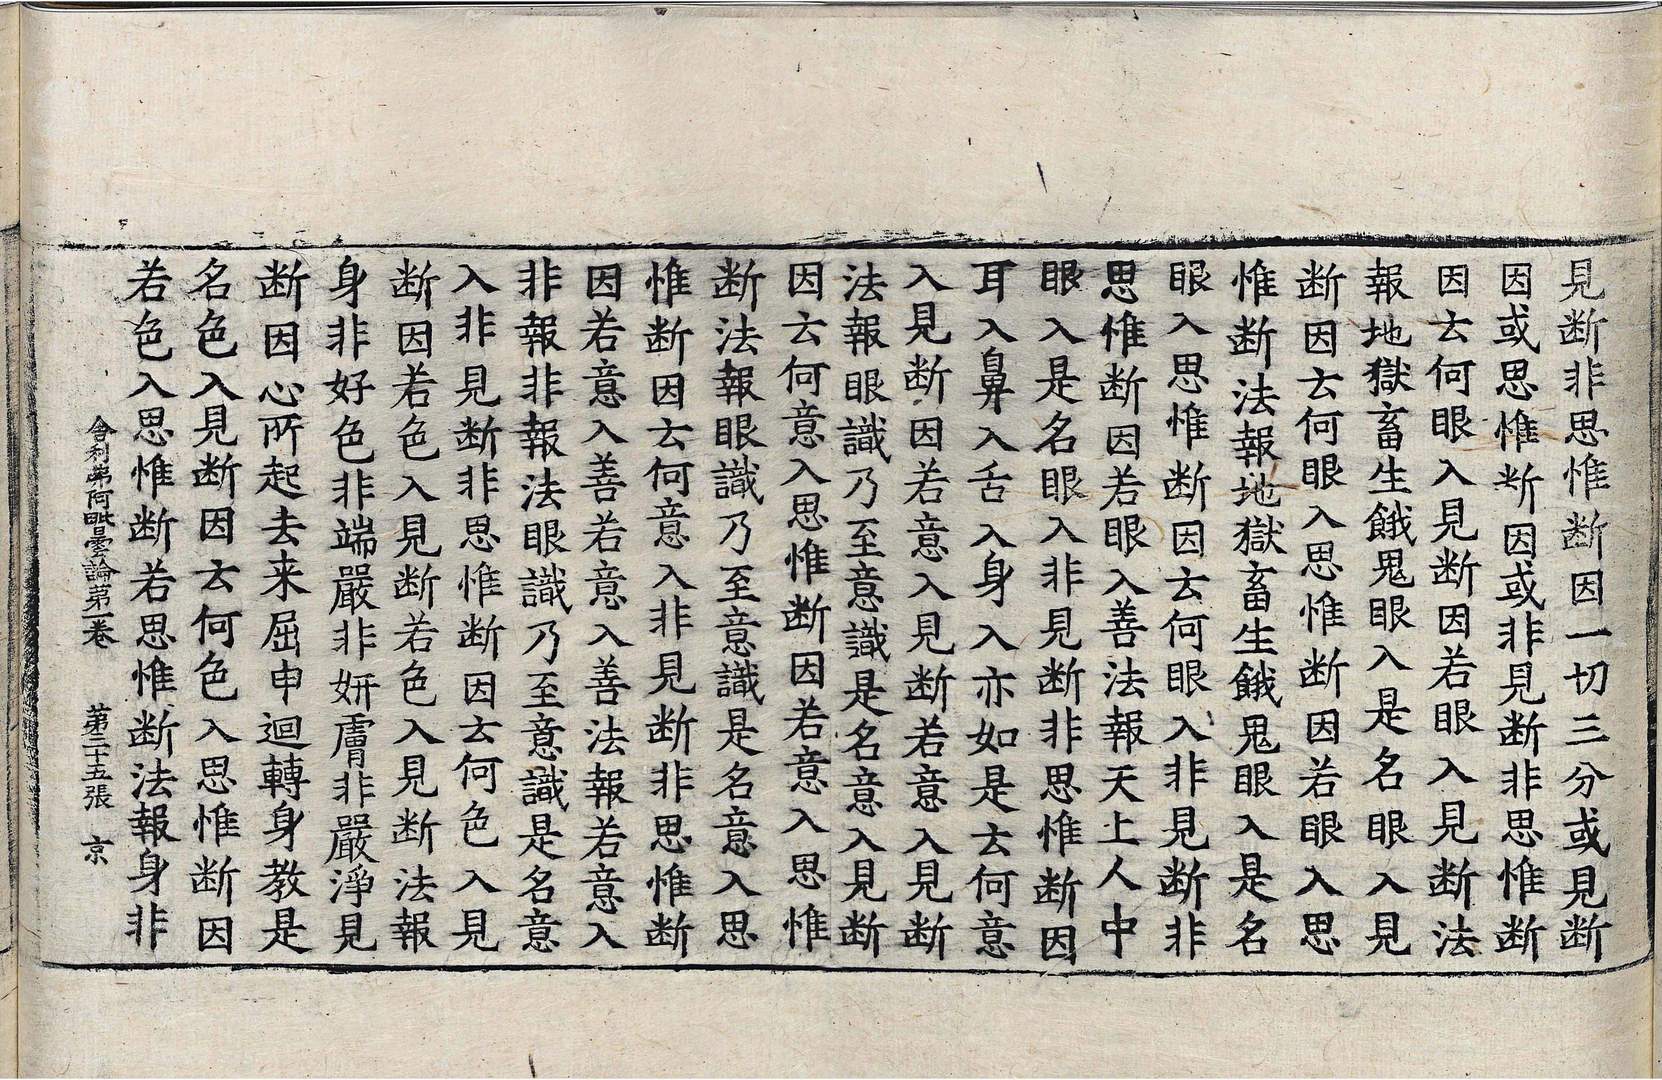 見断非思惟断因一切三分或見断
因或思惟断因或非見断非思惟断
因云何眼入見断因若眼入見断法
報地獄畜生餓鬼眼入是名眼入見
断因云何眼入思惟断因若眼入思
惟断法報地獄畜生餓鬼眼入是名
眼入思惟断因云何眼入非見断非
思惟断因若眼入善法報天上人中
眼入是名眼入非見断非思惟断因
耳入鼻入舌入身入亦如是云何意
入見断因若意入見断若意入見断
法報眼識乃至意識是名意入見断
因云何意入思惟断因若意入思惟
断法報眼識乃至意識是名意入思
惟断因云何意入非見断非思惟断
因若意入善若意入善法報若意入
非報非報法眼識乃至意識是名意
入非見断非思惟断因云何色入見
断因若色入見断若色入見断法報
身非好色非端嚴非妍膚非嚴淨見
断因心所起去来屈申迴轉身教是
名色入見断因云何色入思惟断因
若色入思惟断若思惟断法報身非
舎利弗阿毗曇論第一卷 第二十五張 京